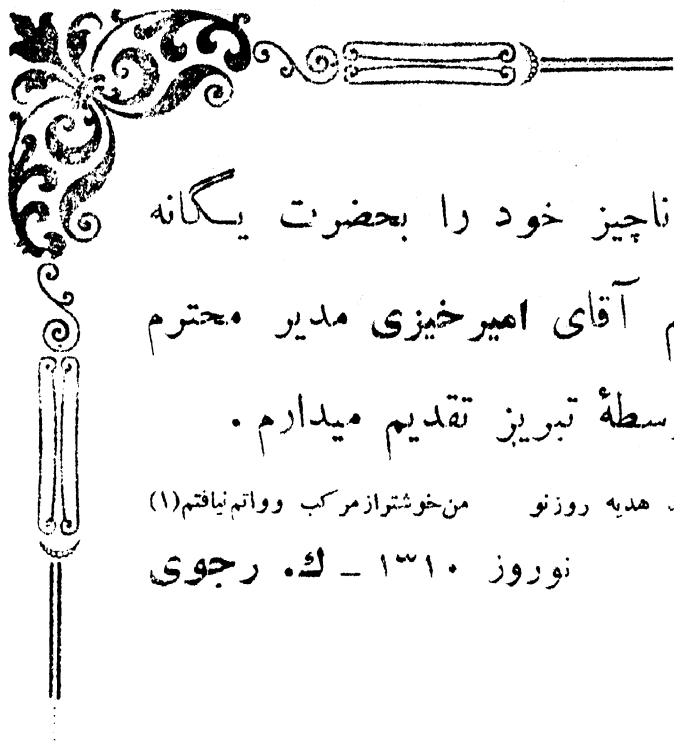 ناچیز خود را بحضرت یگانه
آقای امیرخیزی مدیر محترم
تبریز تقدیم میدارم .
هدیه روز نو من خوشتر از مرکب و واتم نیافتم (۱)
نوروز ۱۳۱۰ ـ ك. رجوی